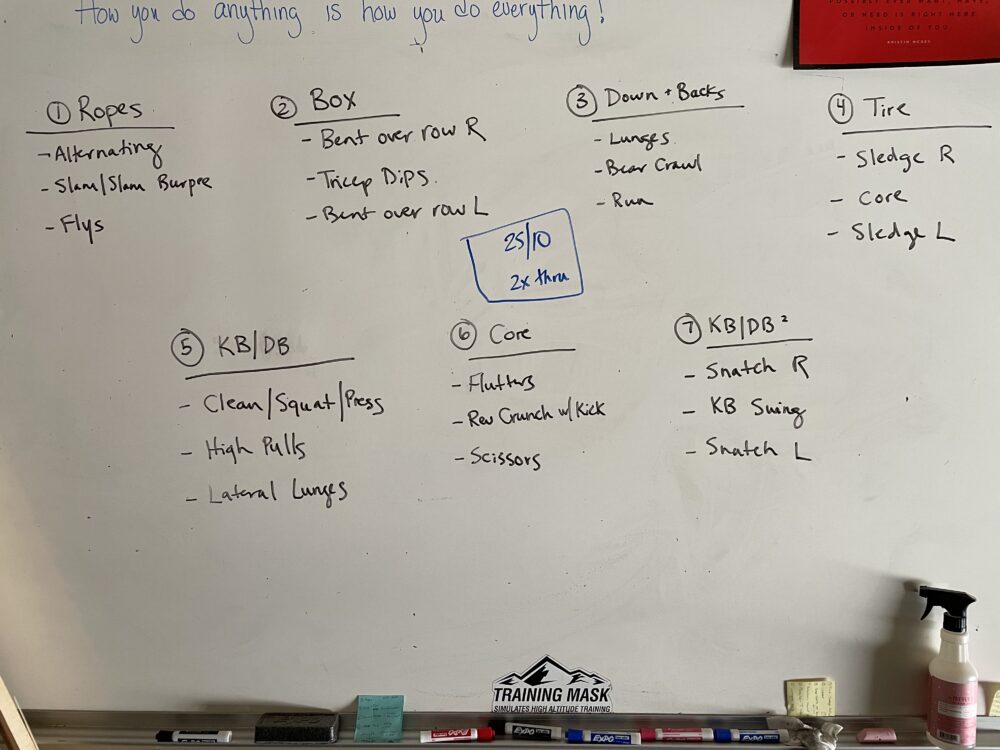 How you do anything is how you do everything!
POSSIBLY EVER WANT, HAVE,
OR NEED IS RIGHT HERE
INSIDE OF YOU.
① Ropes
- Alternating
- Slam/Slam Burpee
- Flys
② Box
- Bent over row R
- Tricep Dips.
- Bent over row L
③ Down + Backs
- Lunges
- Bear Crawl
- Run
④ Tire
- Sledge R
- Core
- Sledge L
25/10
2x thru
⑤ KB/DB
- Clean/Squat/Press
- High Pulls
- Lateral Lunges
⑥ Core
- Flutters
- Rev Crunch w/Kick
- Scissors
⑦ KB/DB²
- Snatch R
- KB Swing
- Snatch L
TRAINING MASK
SIMULATES HIGH ALTITUDE TRAINING
EXPO
EXPO
EXPO
EXPO